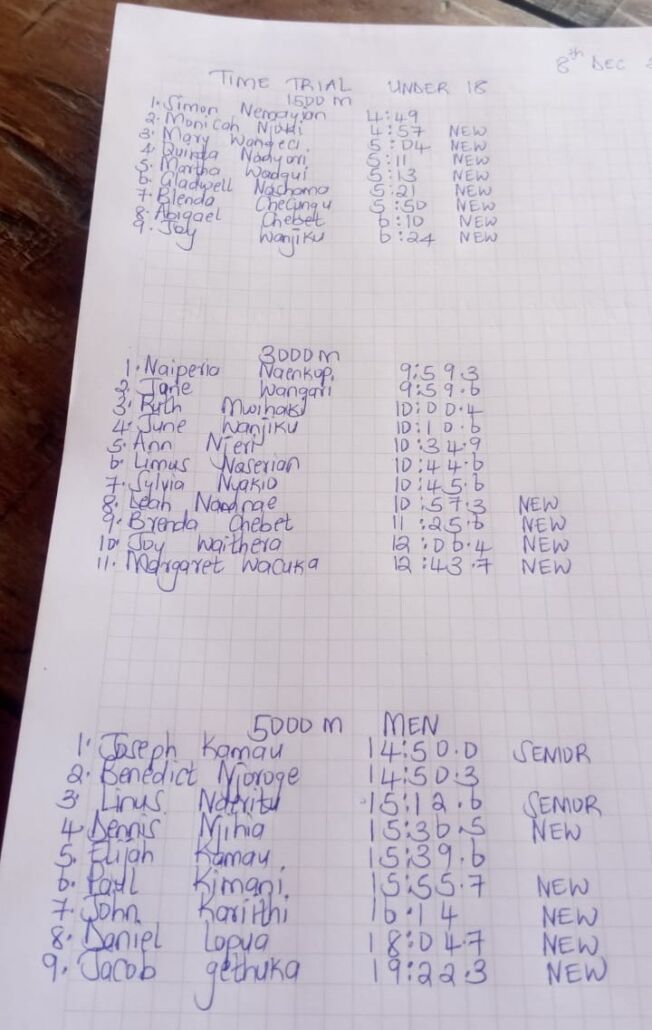 8th DEC
TIME TRIAL UNDER 18
1500 m
1. Simon Nemayian 4:49
2. Monicah Njoki 4:57 NEW
3. Mary Wangeci 5:04 NEW
4. Quinda Nadyori 5:11 NEW
5. Martha Wadgui 5:13 NEW
6. Gladwell Nachoma 5:21 NEW
7. Blenda Chelungu 5:50 NEW
8. Abigael Chebet 6:10 NEW
9. Joy Wanjiku 6:24 NEW
3000 m
1. Naiperia Naenkop. 9:59.3
2. Jane Wangari 9:59.6
3. Ruth Mwihaki 10:00.4
4. June Wanjiku 10:10.6
5. Ann Njeri 10:34.9
6. Limus Naserian 10:44.6
7. Sylvia Nyakio 10:45.6
8. Leah 10:57.3 NEW
9. Brenda Chebet 11:25.6 NEW
10. Joy Waithera 12:06.4 NEW
11. Margaret Wacuka 12:43.7 NEW
5000 m MEN
1. Joseph Kamau 14:50.0 SENIOR
2. Benedict Njoroge 14:50.3
3. Linus Nderitu 15:12.6 SENIOR
4. Dennis Njihia 15:36.5 NEW
5. Elijah Kamau 15:39.6
6. Paul Kimani 15:55.7 NEW
7. John Kariithi 16:14 NEW
8. Daniel Lopua 18:04.7 NEW
9. Jacob gethuka 19:22.3 NEW